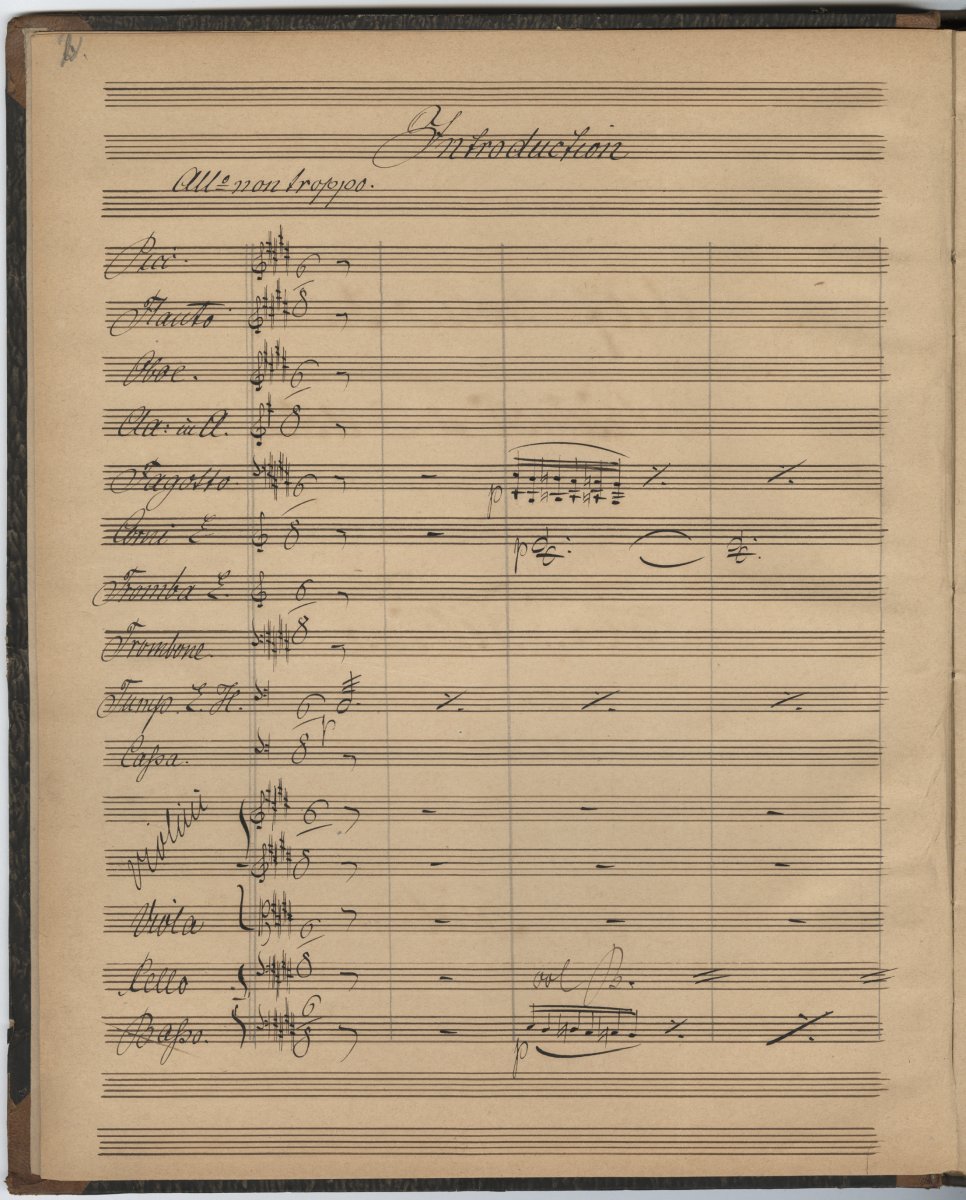 Introduction
All<sup>o</sup> non troppo.
Picc.
Flauto
Oboe.
Cla: in A.
Fagotto
p
Corni E
p
Tromba E.
Trombone.
Timp. E. H.
p
Cassa.
Violini
Viola
Cello
col B.
Basso.
p